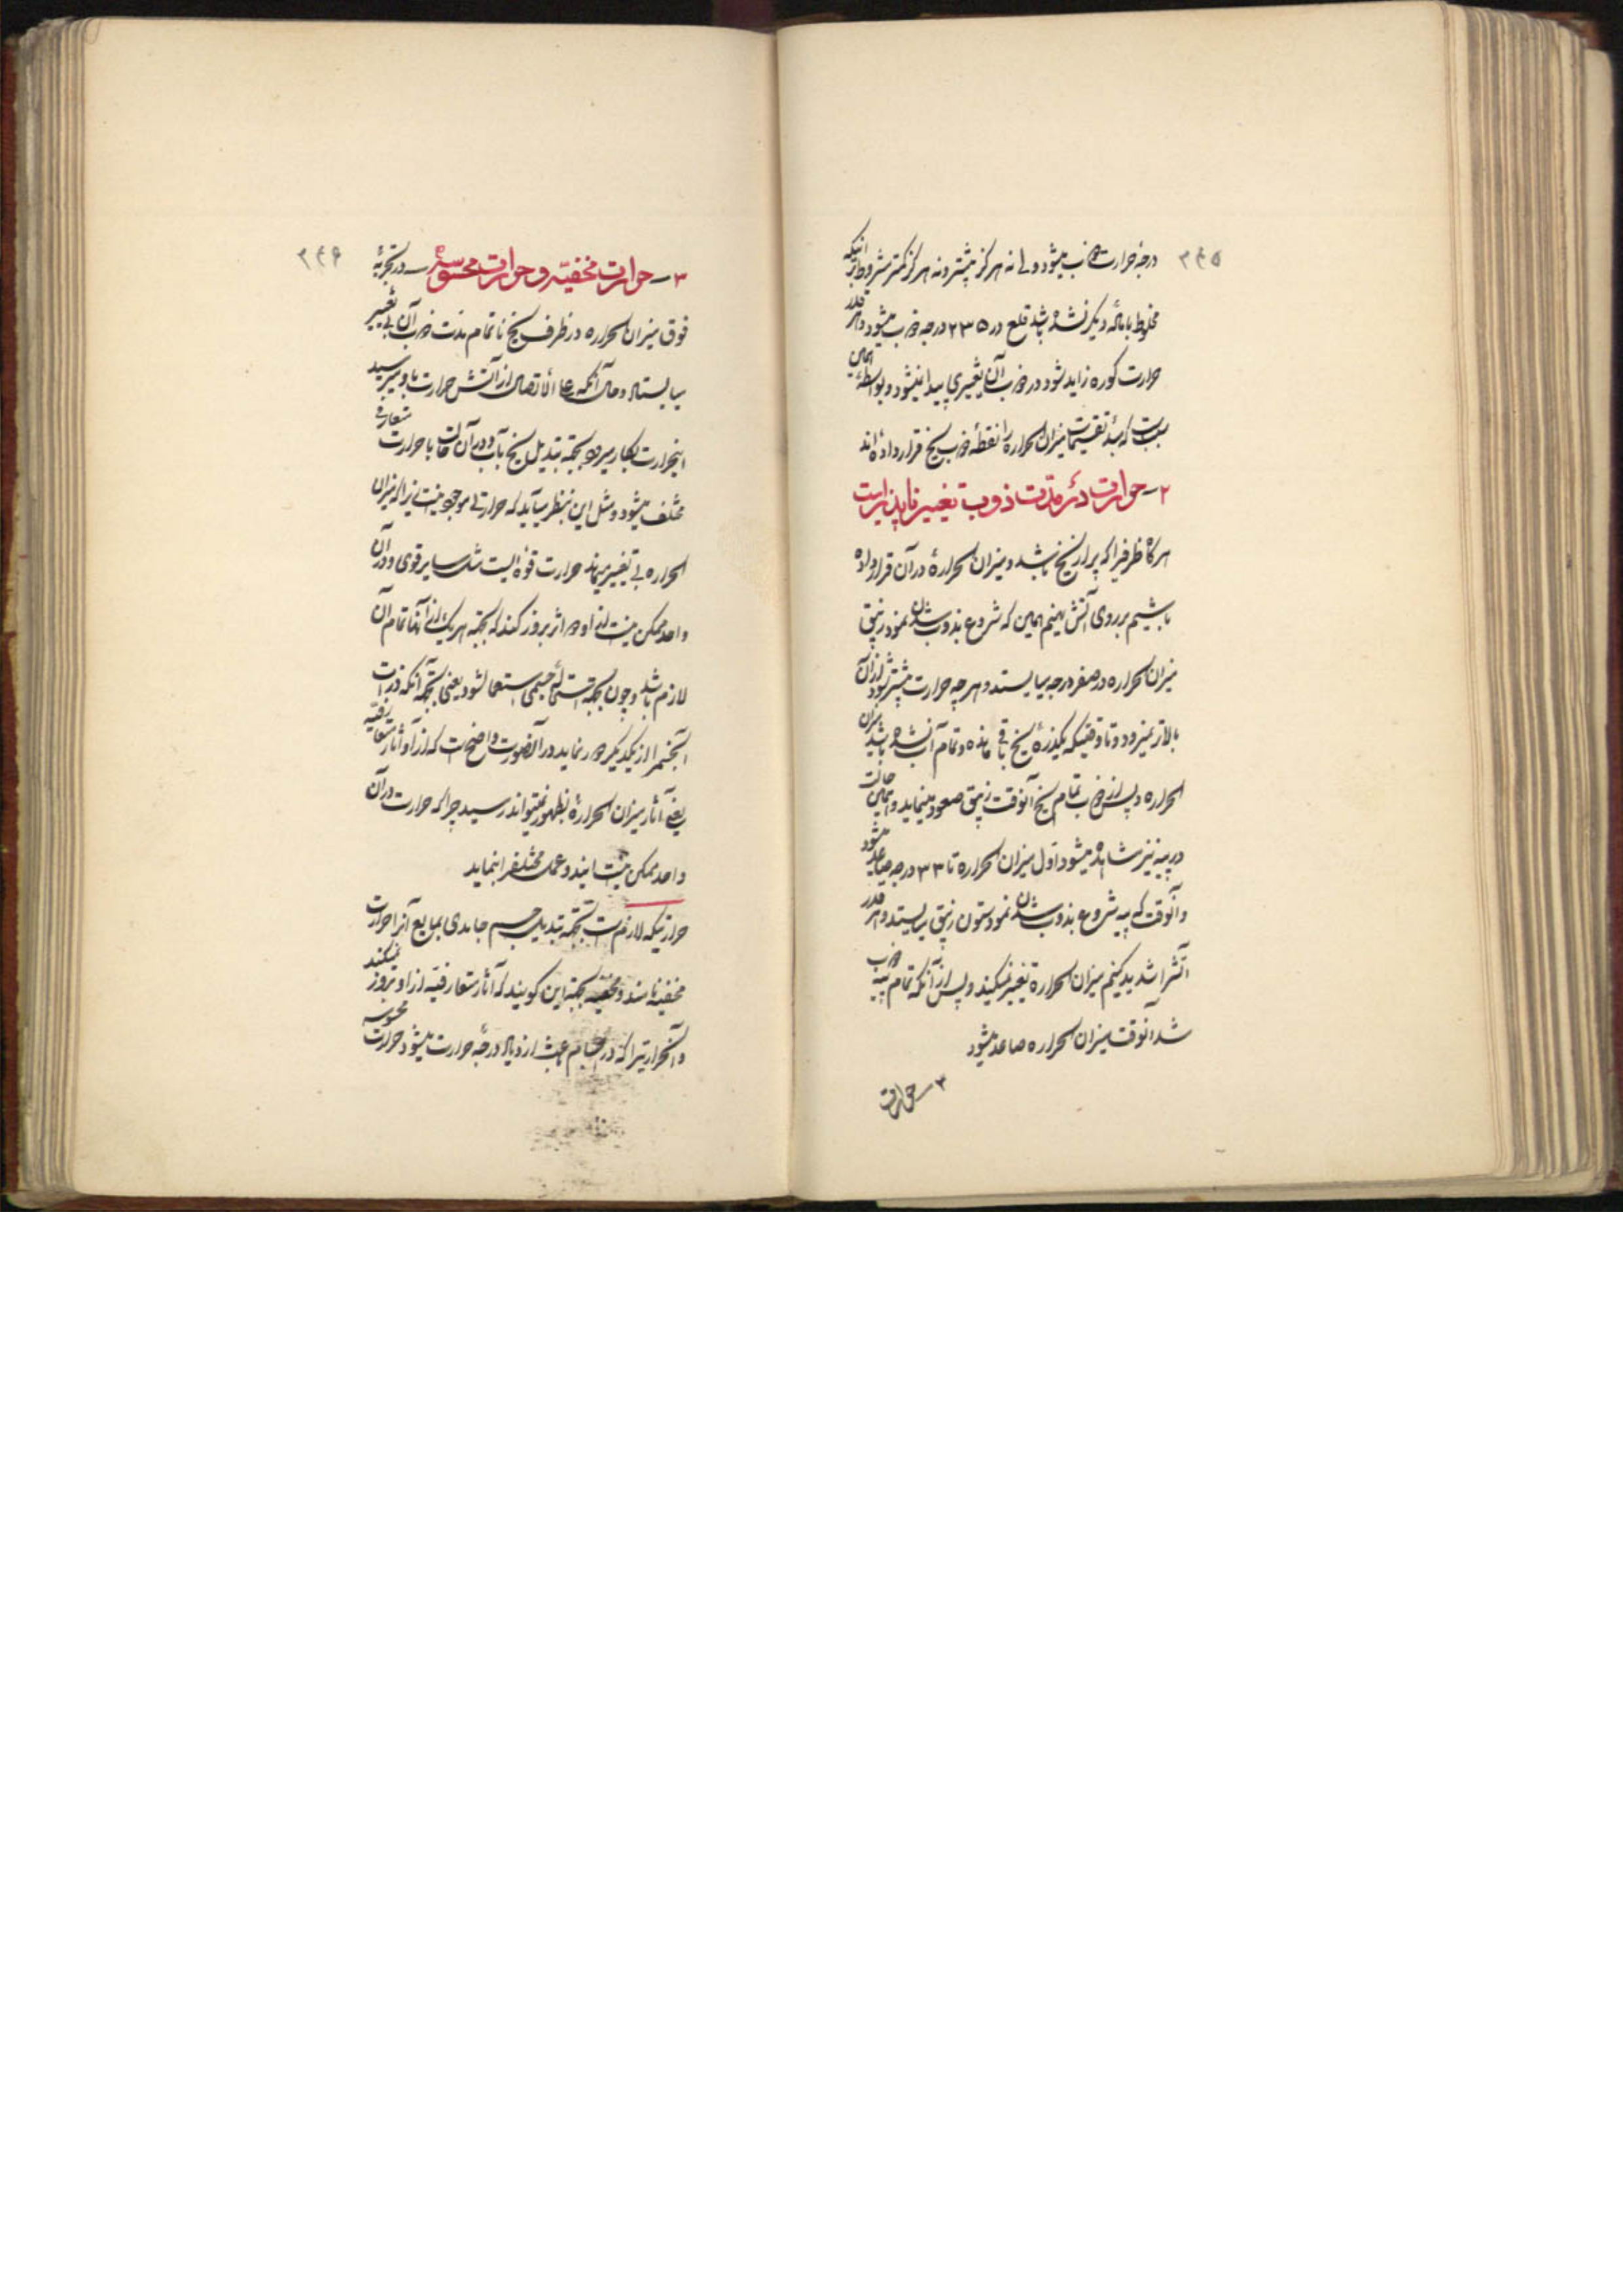 ۲۴۵
درجهٔ حرارت ذوب میشود ولی نه هرگز بیشتر و نه هرگز کمتر مشروط بر اینکه
مخلوط با مادهٔ دیگر نشده باشد قلع در ۲۳۵ درجه ذوب میشود و هر قدر
حرارت کوره زاید شود در ذوب آن تغییری پیدا نمیشود و بواسطهٔ همین
سبب است که مبدأ تقسیمات میزان الحراره را نقطهٔ ذوب یخ قرار داده‌اند
۲ – حرارت در مدت ذوب تغییر ناپذیر است
هرگاه ظرفیرا که پر از یخ باشد و میزان الحرارهٔ در آن قرار داده
باشیم بر روی آتش نهیم همین که شروع بذوب شدن نمود زیبق
میزان الحراره در صفر درجه میایستد و هر چه حرارت بیشتر شود از آن
بالاتر نمیرود و تا وقتیکه یکذره یخ باقی مانده و تمام آب نشده باشد میزان
الحراره و پس از ذوب تمام یخ آنوقت زیبق صعود مینماید و همین حالت
در پیه نیز مشاهده میشود اول میزان الحراره تا ۳۳ درجه صاعد میشود
و آنوقت که پیه شروع بذوب شدن نمود ستون زیبق میایستد و هر قدر
آتشرا شدید کنیم میزان الحراره تغییر نمیکند و پس از آنکه تمام پیه ذوب
شد آنوقت میزان الحراره صاعد میشود
۳ – حرارت
۲۴۶
۳ – حرارت مخفیّه و حرارت محسوسه – در تجربهٔ
فوق میزان الحراره در ظرف یخ تا تمام مدت ذوب آن بی تغییر
میایستاد و حال آنکه علی الاتصال از آتش حرارت باو میرسید
اینحرارت بکار میرود بجهة تبدیل یخ بآب و در آن حالت با حرارت متعارفی
مختلف میشود و مثل این بنظر میآید که حرارتی موجود نیست زیرا که میزان
الحراره بی تغییر میماند حرارت قوه ایست مثل سایر قوی و در آن
واحد ممکن نیست از او دو اثر بروز کند که بجهة هر یک از آنها تمام آن
لازم باشد و چون بجهة استحالهٔ جسمی استعمال شود یعنی بجهة آنکه ذرات
آنجسمرا از یکدیگر دور نماید در آنصورت واضح است که از او آثار متعارفیه
یعنی آثار میزان الحراره بظهور نمیتواند رسید چرا که حرارت در آن
واحد ممکن نیست ایندو عمل مختلف را بنماید
حرارتیکه لازم است بجهة تبدیل جسم جامدی بمایع آنرا حرارت
مخفیه نامند و مخفیه بجهة این گویند که آثار متعارفیه از او بروز نمیکند
و آنحرارتیرا که در اجسام باعث ازدیاد درجهٔ حرارت میشود حرارت محسوسه